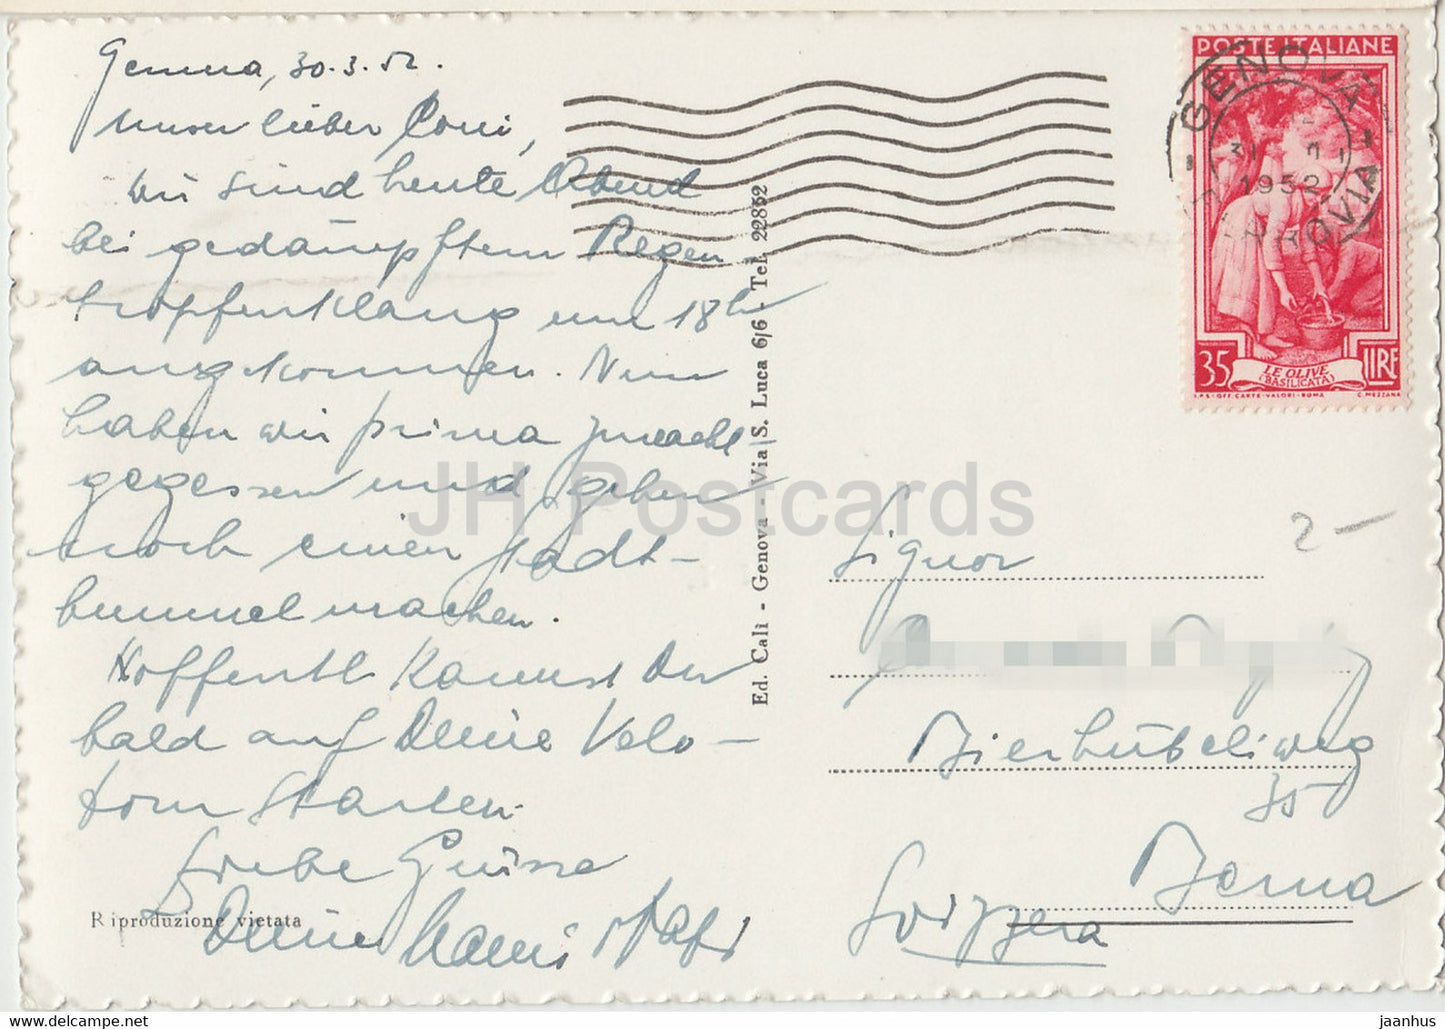 Genova, 30.3.52.
Unser lieber Coni,
Wir sind heute Abend
bei gedämpftem Regen
tropfenklang um 18 h
angekommen. Nun
haben wir prima znacht
gegessen und gehen
noch einen Stadt-
bummel machen.
Hoffentl. kannst Du
bald auf Deine Velo-
tour starten.
Liebe Grüsse
Deine Mami
Riproduzione vietata
Ed. Calì - Genova - Via S. Luca 6/6 - Tel. 22852
POSTE ITALIANE
35 LE OLIVE LIRE
(BASILICATA)
I.P.S-OFF. CARTE-VALORI-ROMA C. MEZZANA
GENOVA
31
1952
FERROVIA
2-
Signor
Bierhübeliweg
35
Berna
Svizzera
JH Postcards
jaanhus www.delcampe.net